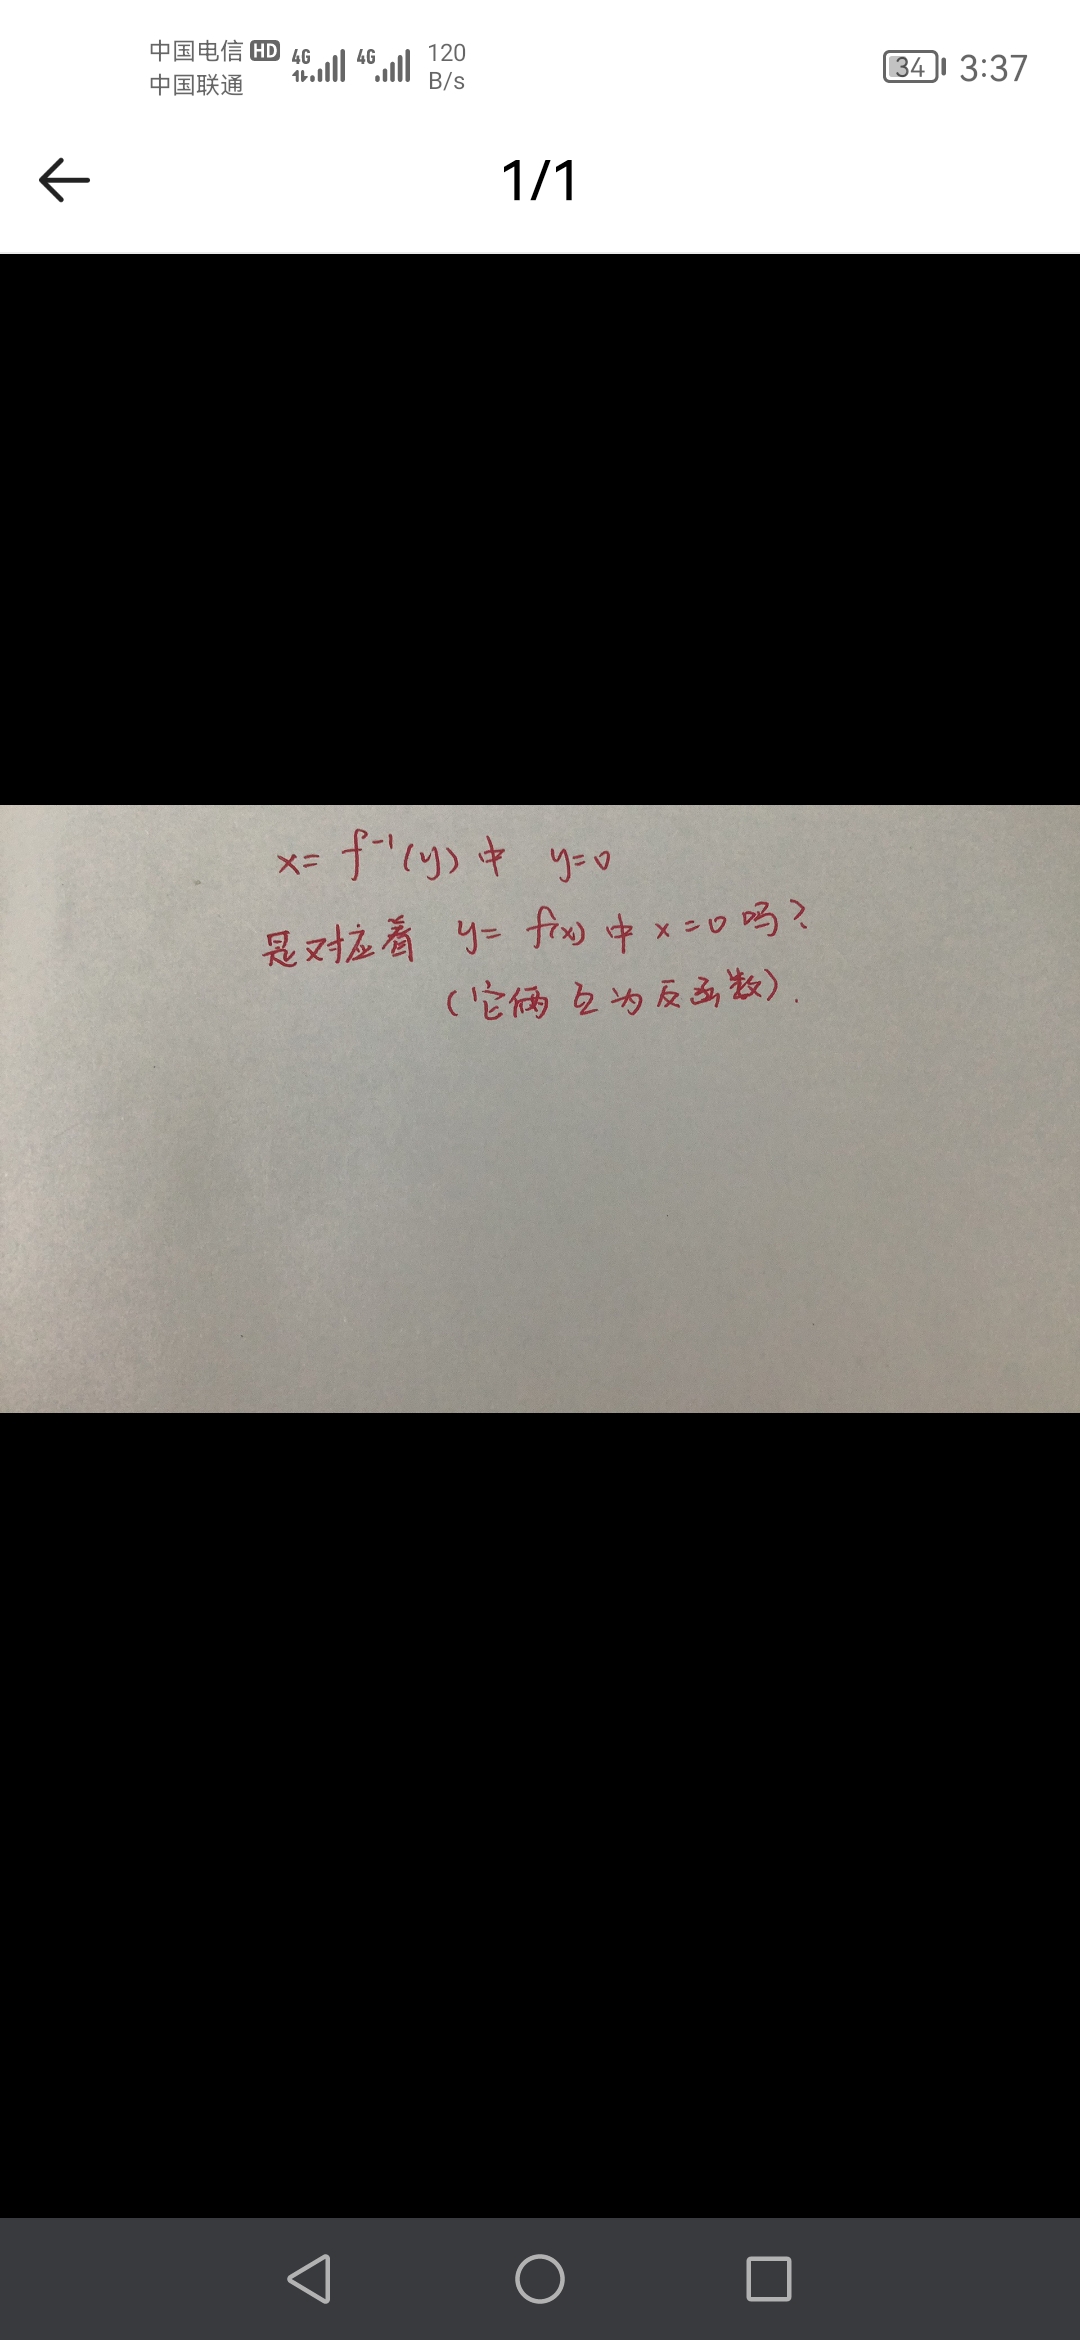 中国电信 HD 4G 4G 120 B/s 34 3:37
中国联通
1/1
x= f⁻¹(y) 中 y=0
是对应着 y= f(x) 中 x=0 吗?
(它俩互为反函数).